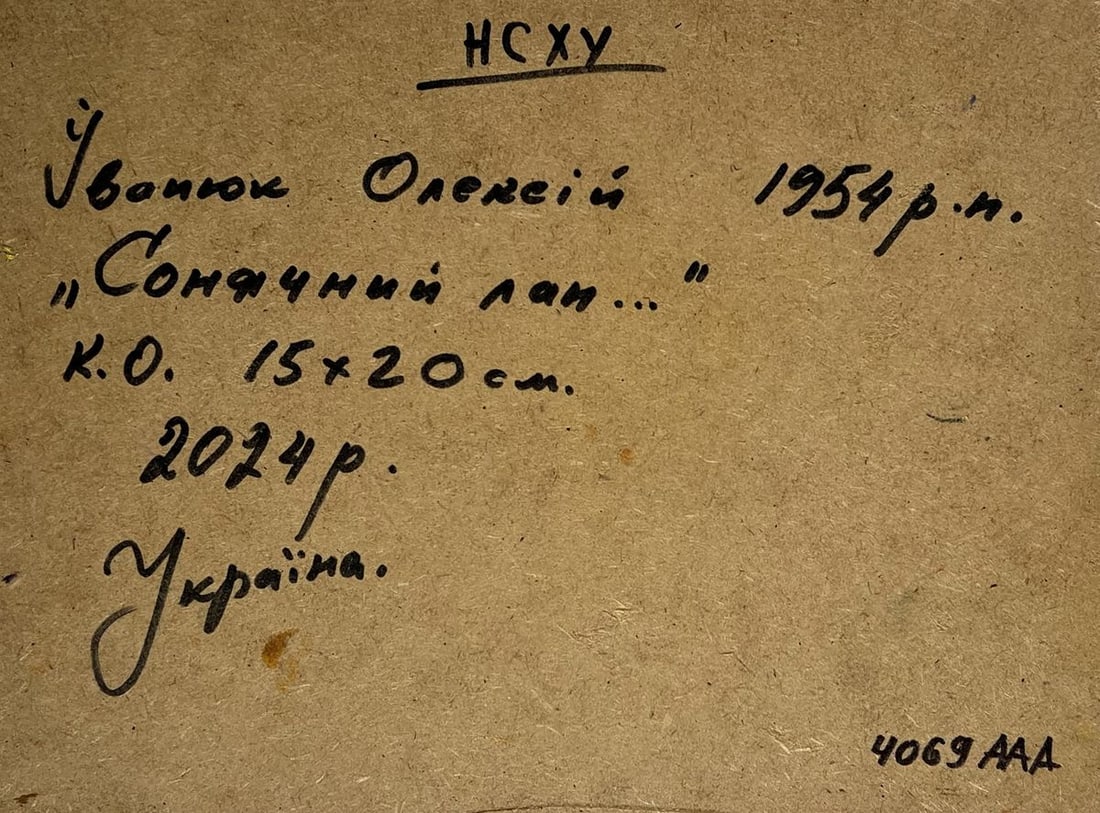 НСХУ
Іванюк Олексій 1954 р.н.
„Сонячний лан..."
К.О. 15х20 см.
2024 р.
Україна.
4069 ААА